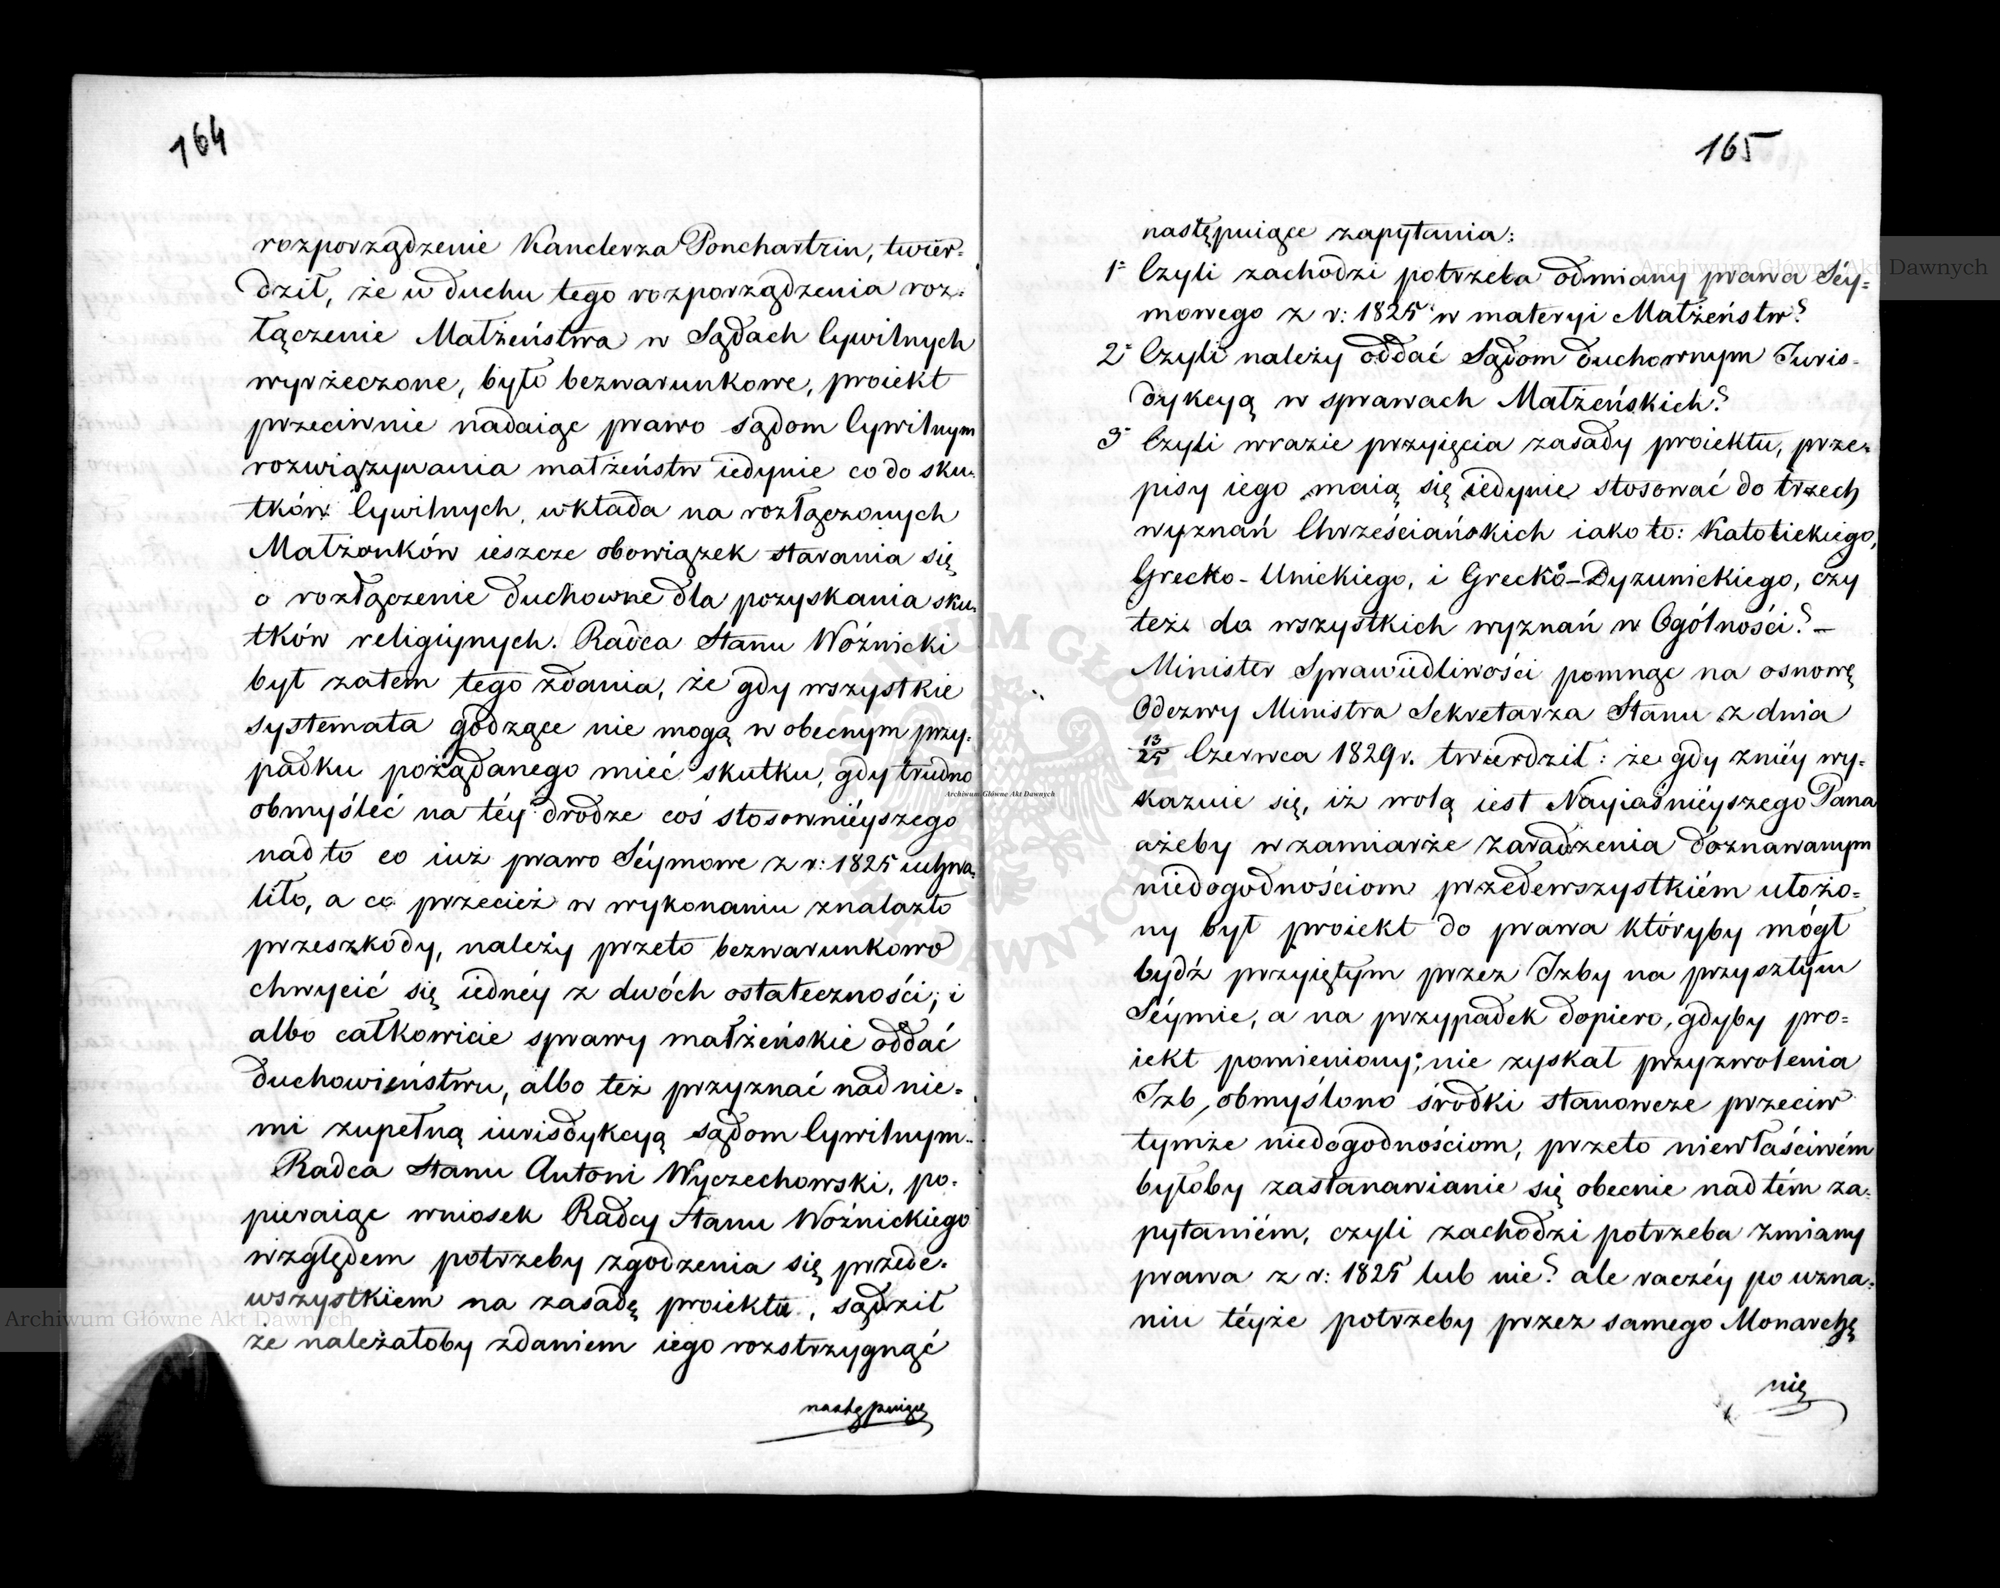 164
rozporządzenie Kanclerza Ponchartrin, twier-
dził, że w duchu tego rozporządzenia roz-
łączenie Małżeństwa w Sądach Cywilnych
wyrzeczone, było bezwarunkowe, proiekt
przeciwnie nadaiąc prawo sądom Cywilnym
rozwiązywania małżeństw iedynie co do sku-
tków Cywilnych, wkłada na rozłączonych
Małżonków ieszcze obowiązek starania się
o rozłączenie duchowne dla pozyskania sku-
tków religiynych. Radca Stanu Woźnicki
był zatem tego zdania, że gdy wszystkie
systemata godzące nie mogą w obecnym przy-
padku pożądanego mieć skutku, gdy trudno
obmyśleć na téy drodze coś stosowniéyszego
nad to co iuż prawo Séymowe z r: 1825 uchwa-
liło, a co przecież w wykonaniu znalazło
przeszkody, należy przeto bezwarunkowo
chwycić się iednéy z dwóch ostateczności; i
albo całkowicie sprawy małżeńskie oddać
duchowieństwu, albo też przyznać nad nie-
mi zupełną iurisdykcyą sądom Cywilnym.
Radca Stanu Antoni Wyczechowski, po-
pieraiąc wniosek Radcy Stanu Woźnickiego
względem potrzeby zgodzenia się przede-
wszystkiem na zasadę proiektu, sądził
że należałoby zdaniem iego rozstrzygnąć
następuiące
165
następuiące zapytania:
1° Czyli zachodzi potrzeba odmiany prawa Séy-
mowego z r: 1825 w materyi Małżeństw?
2° Czyli należy oddać Sądom duchownym Juris-
dykcyą w sprawach Małżeńskich?
3° Czyli wrazie przyięcia zasady proiektu, prze-
pisy iego maią się iedynie stosować do trzech
wyznań Chrześciańskich iako to: Katolickiego,
Grecko-Unickiego, i Grecko-Dyzunickiego, czy
też do wszystkich wyznań w Ogólności? —
Minister Sprawiedliwości pomnąc na osnowę
Odezwy Ministra Sekretarza Stanu z dnia
13/25 Czerwca 1829 r. twierdził: że gdy zniéy wy-
kazuie się, iż wolą iest Nayiaśniéyszego Pana
ażeby w zamiarze zaradzenia doznawanym
niedogodnościom przedewszystkiém ułożo-
ny był proiekt do prawa któryby mógł
bydź przyiętym przez Izby na przyszłym
Séymie, a na przypadek dopiero, gdyby pro-
iekt pomieniony, nie zyskał przyzwolenia
Izb, obmyślono środki stanowcze przeciw
tymże niedogodnościom, przeto niewłaściwém
byłoby zastanawianie się obecnie nad tém za-
pytaniém, czyli zachodzi potrzeba zmiany
prawa z r: 1825 lub nie? ale raczéy po uzna-
niu téyże potrzeby przez samego Monarchę
nie
Archiwum Główne Akt Dawnych
Archiwum Główne Akt Dawnych
Archiwum Główne Akt Dawnych
ARCHIWUM GŁÓWNE AKT DAWNYCH